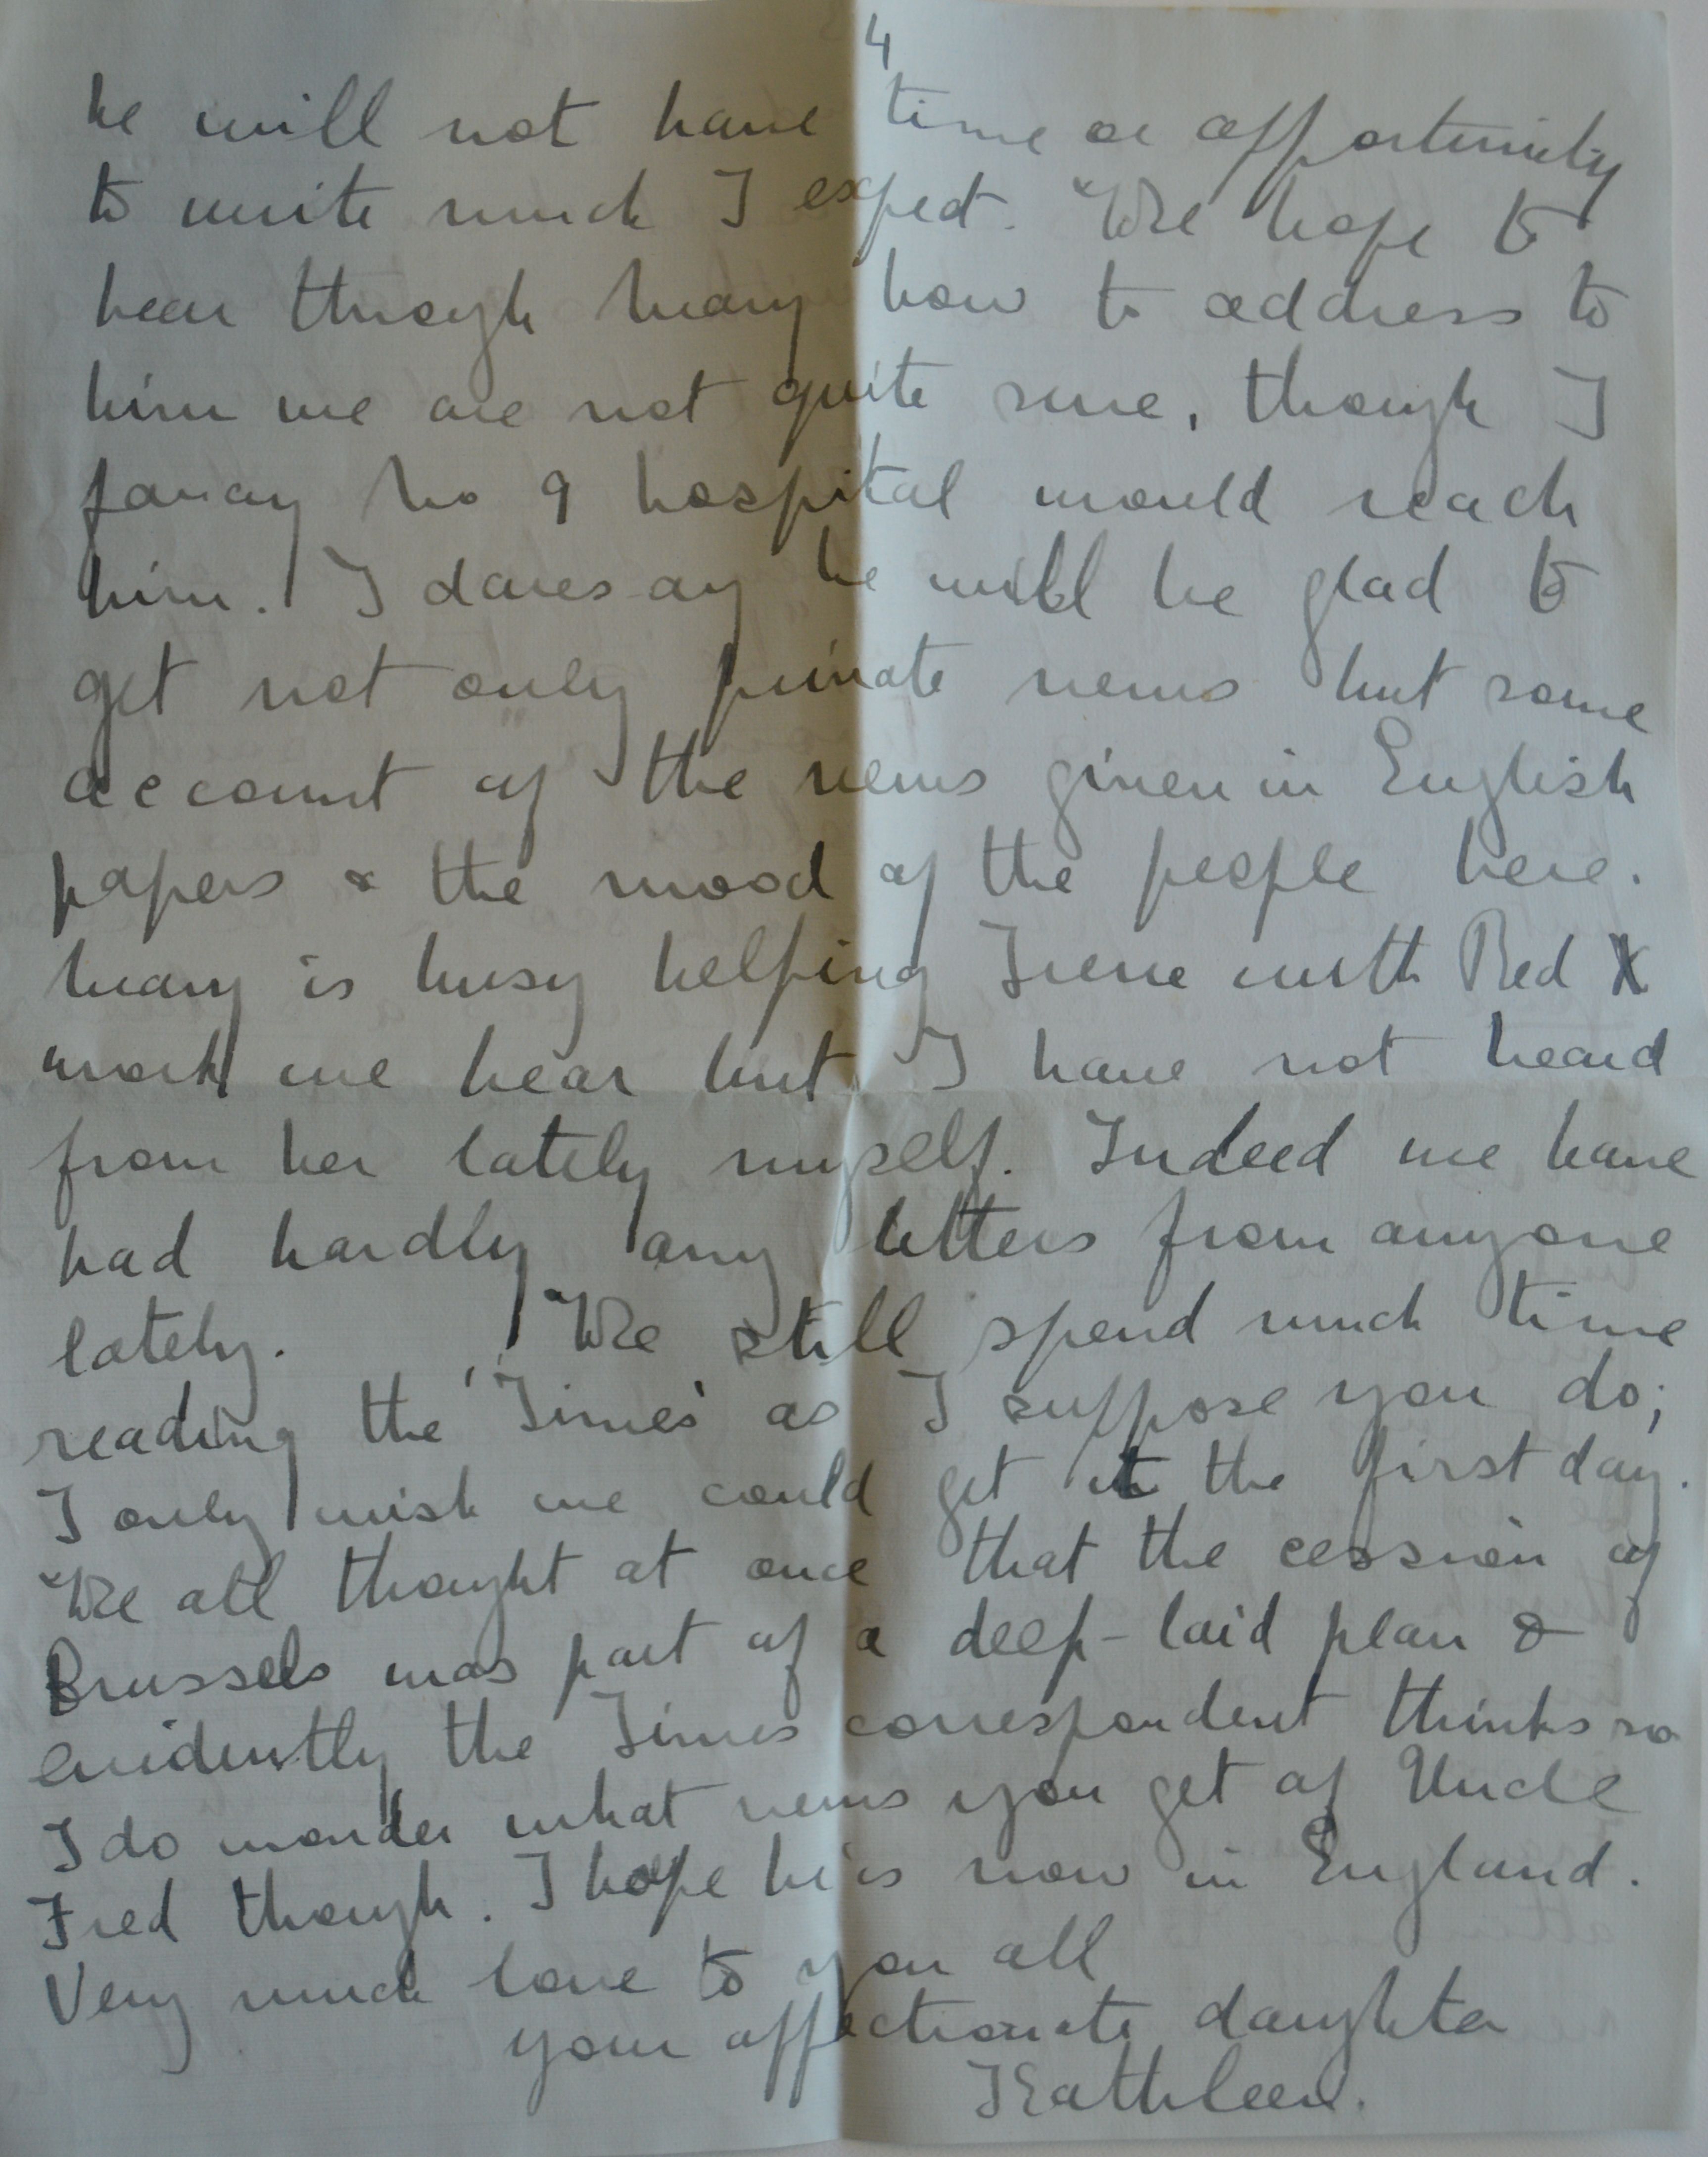 4
he will not have time or opportunity
to write much I expect. We hope to
hear through Mary how to address to
him we are not quite sure, though I
fancy No 9 hospital would reach
him. I daresay he will be glad to
get not only private news but some
account of the news given in English
papers & the mood of the people here.
Mary is busy helping Irene with Red X
work we hear but I have not heard
from her lately myself. Indeed we have
had hardly any letters from anyone
lately. We still spend much time
reading the 'Times' as I suppose you do;
I only wish we could get it the first day.
We all thought at once that the cession of
Brussels was part of a deep-laid plan &
evidently the Times correspondent thinks so
I do wonder what news you get of Uncle
Fred though. I hope he is now in England.
Very much love to you all
your affectionate daughter
Kathleen.